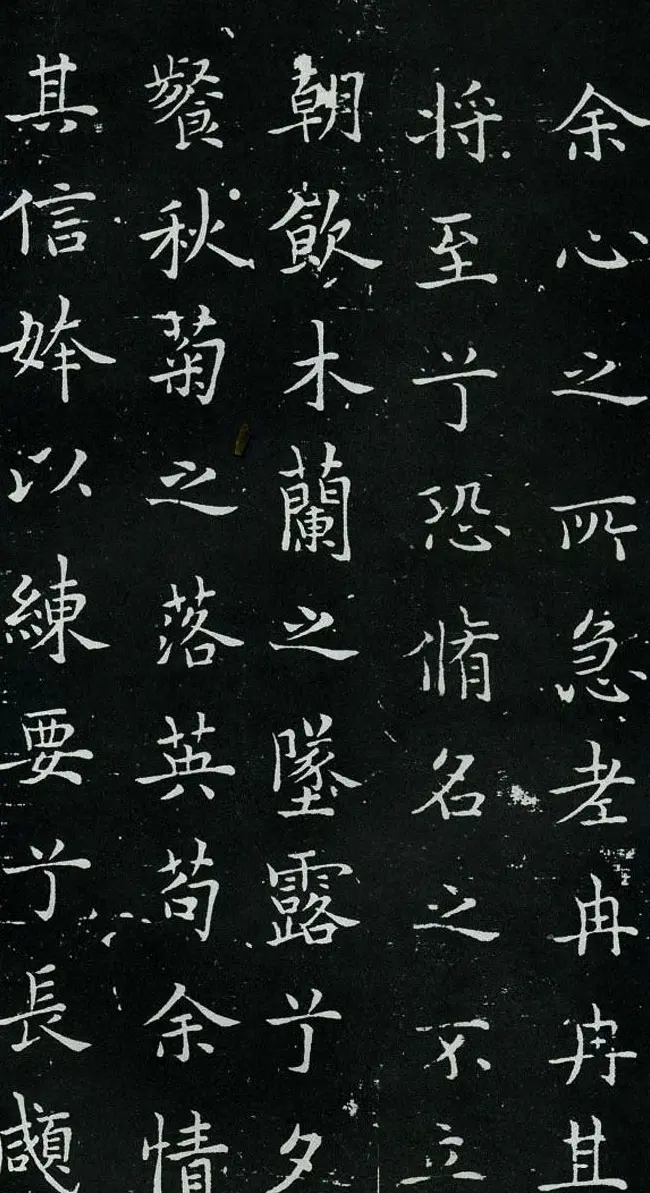 余心之所急老冉冉其
将至兮恐脩名之不立
朝飲木蘭之墜露兮夕
餐秋菊之落英苟余情
其信姱以練要兮長顑